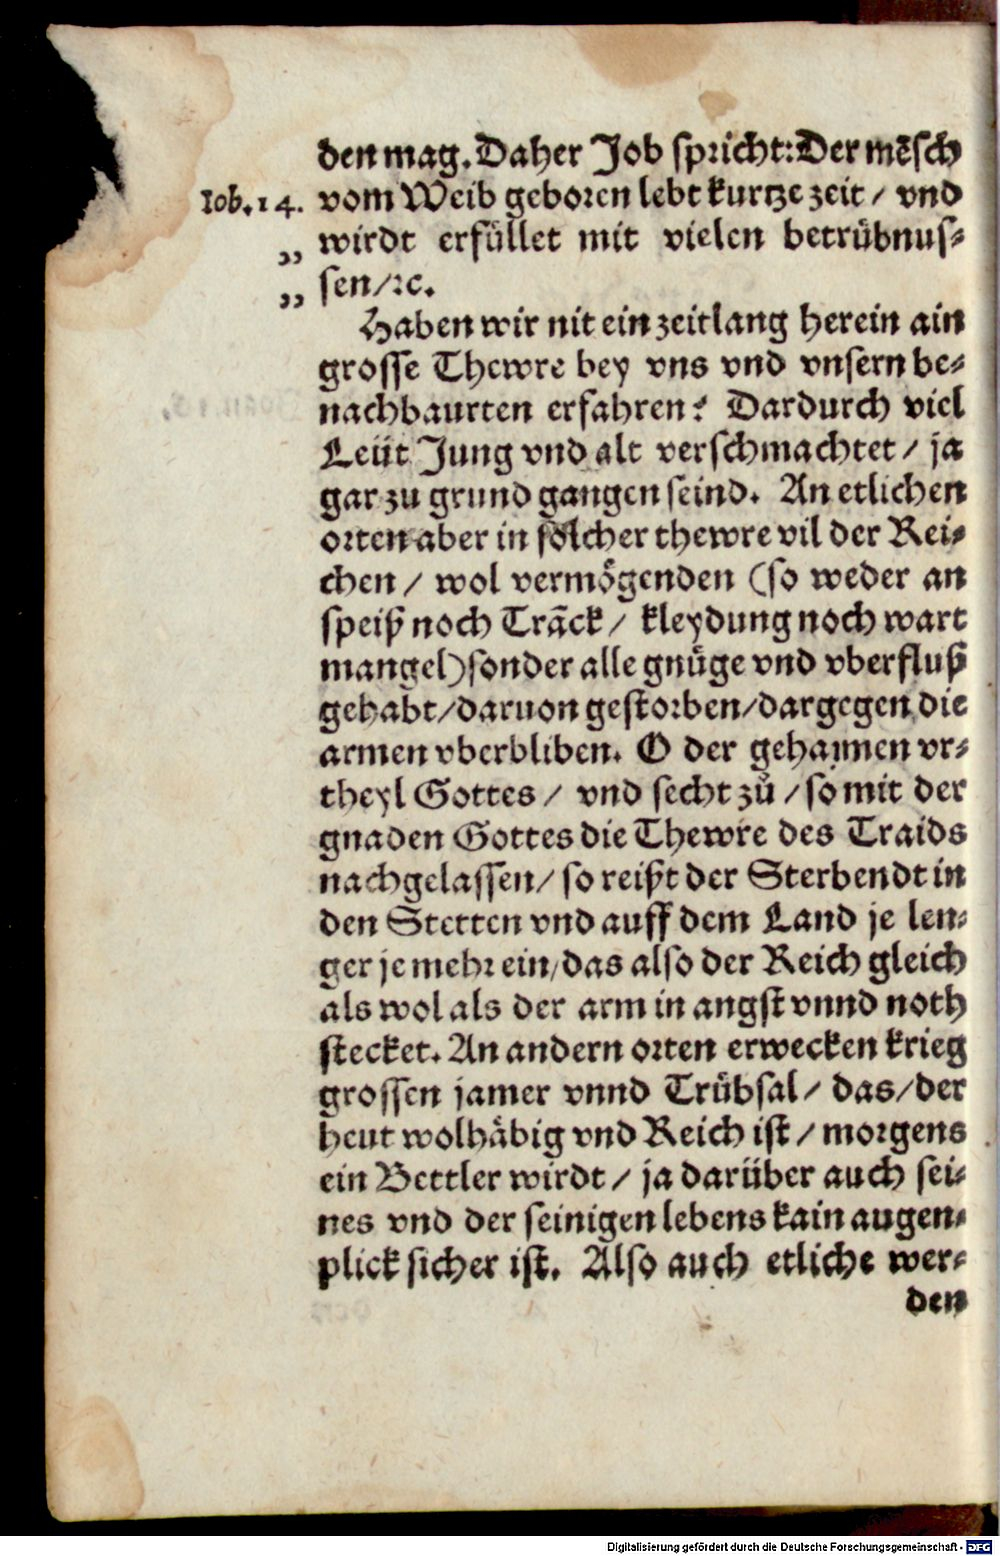 den mag. Daher Job spricht: Der mẽsch
Iob. 14. vom Weib geboren lebt kurtze zeit / vnd
„ wirdt erfüllet mit vielen betrübnus⸗
„ sen / ꝛc.
Haben wir nit ein zeitlang herein ain
grosse Thewre bey vns vnd vnsern be⸗
nachbaurten erfahren? Dardurch viel
Leüt Jung vnd alt verschmachtet / ja
gar zu grund gangen seind. An etlichen
orten aber in sölcher thewre vil der Rei⸗
chen / wol vermögenden (so weder an
speiß noch Trãck / kleydung noch wart
mangel) sonder alle gnüge vnd vberfluß
gehabt / daruon gestorben / dargegen die
armen vberbliben. O der gehaimen vr⸗
theyl Gottes / vnd secht zů / so mit der
gnaden Gottes die Thewre des Traids
nachgelassen / so reißt der Sterbendt in
den Stetten vnd auff dem Land je len⸗
ger je mehr ein / das also der Reich gleich
als wol als der arm in angst vnnd noth
stecket. An andern orten erwecken krieg
grossen jamer vnnd Trübsal / das / der
heut wolhäbig vnd Reich ist / morgens
ein Bettler wirdt / ja darüber auch sei⸗
nes vnd der seinigen lebens kain augen⸗
plick sicher ist. Also auch etliche wer⸗
den
Digitalisierung gefördert durch die Deutsche Forschungsgemeinschaft - DFG